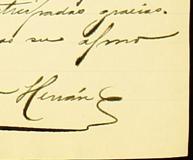 anticipadas gracias.
su afmo
Herrán